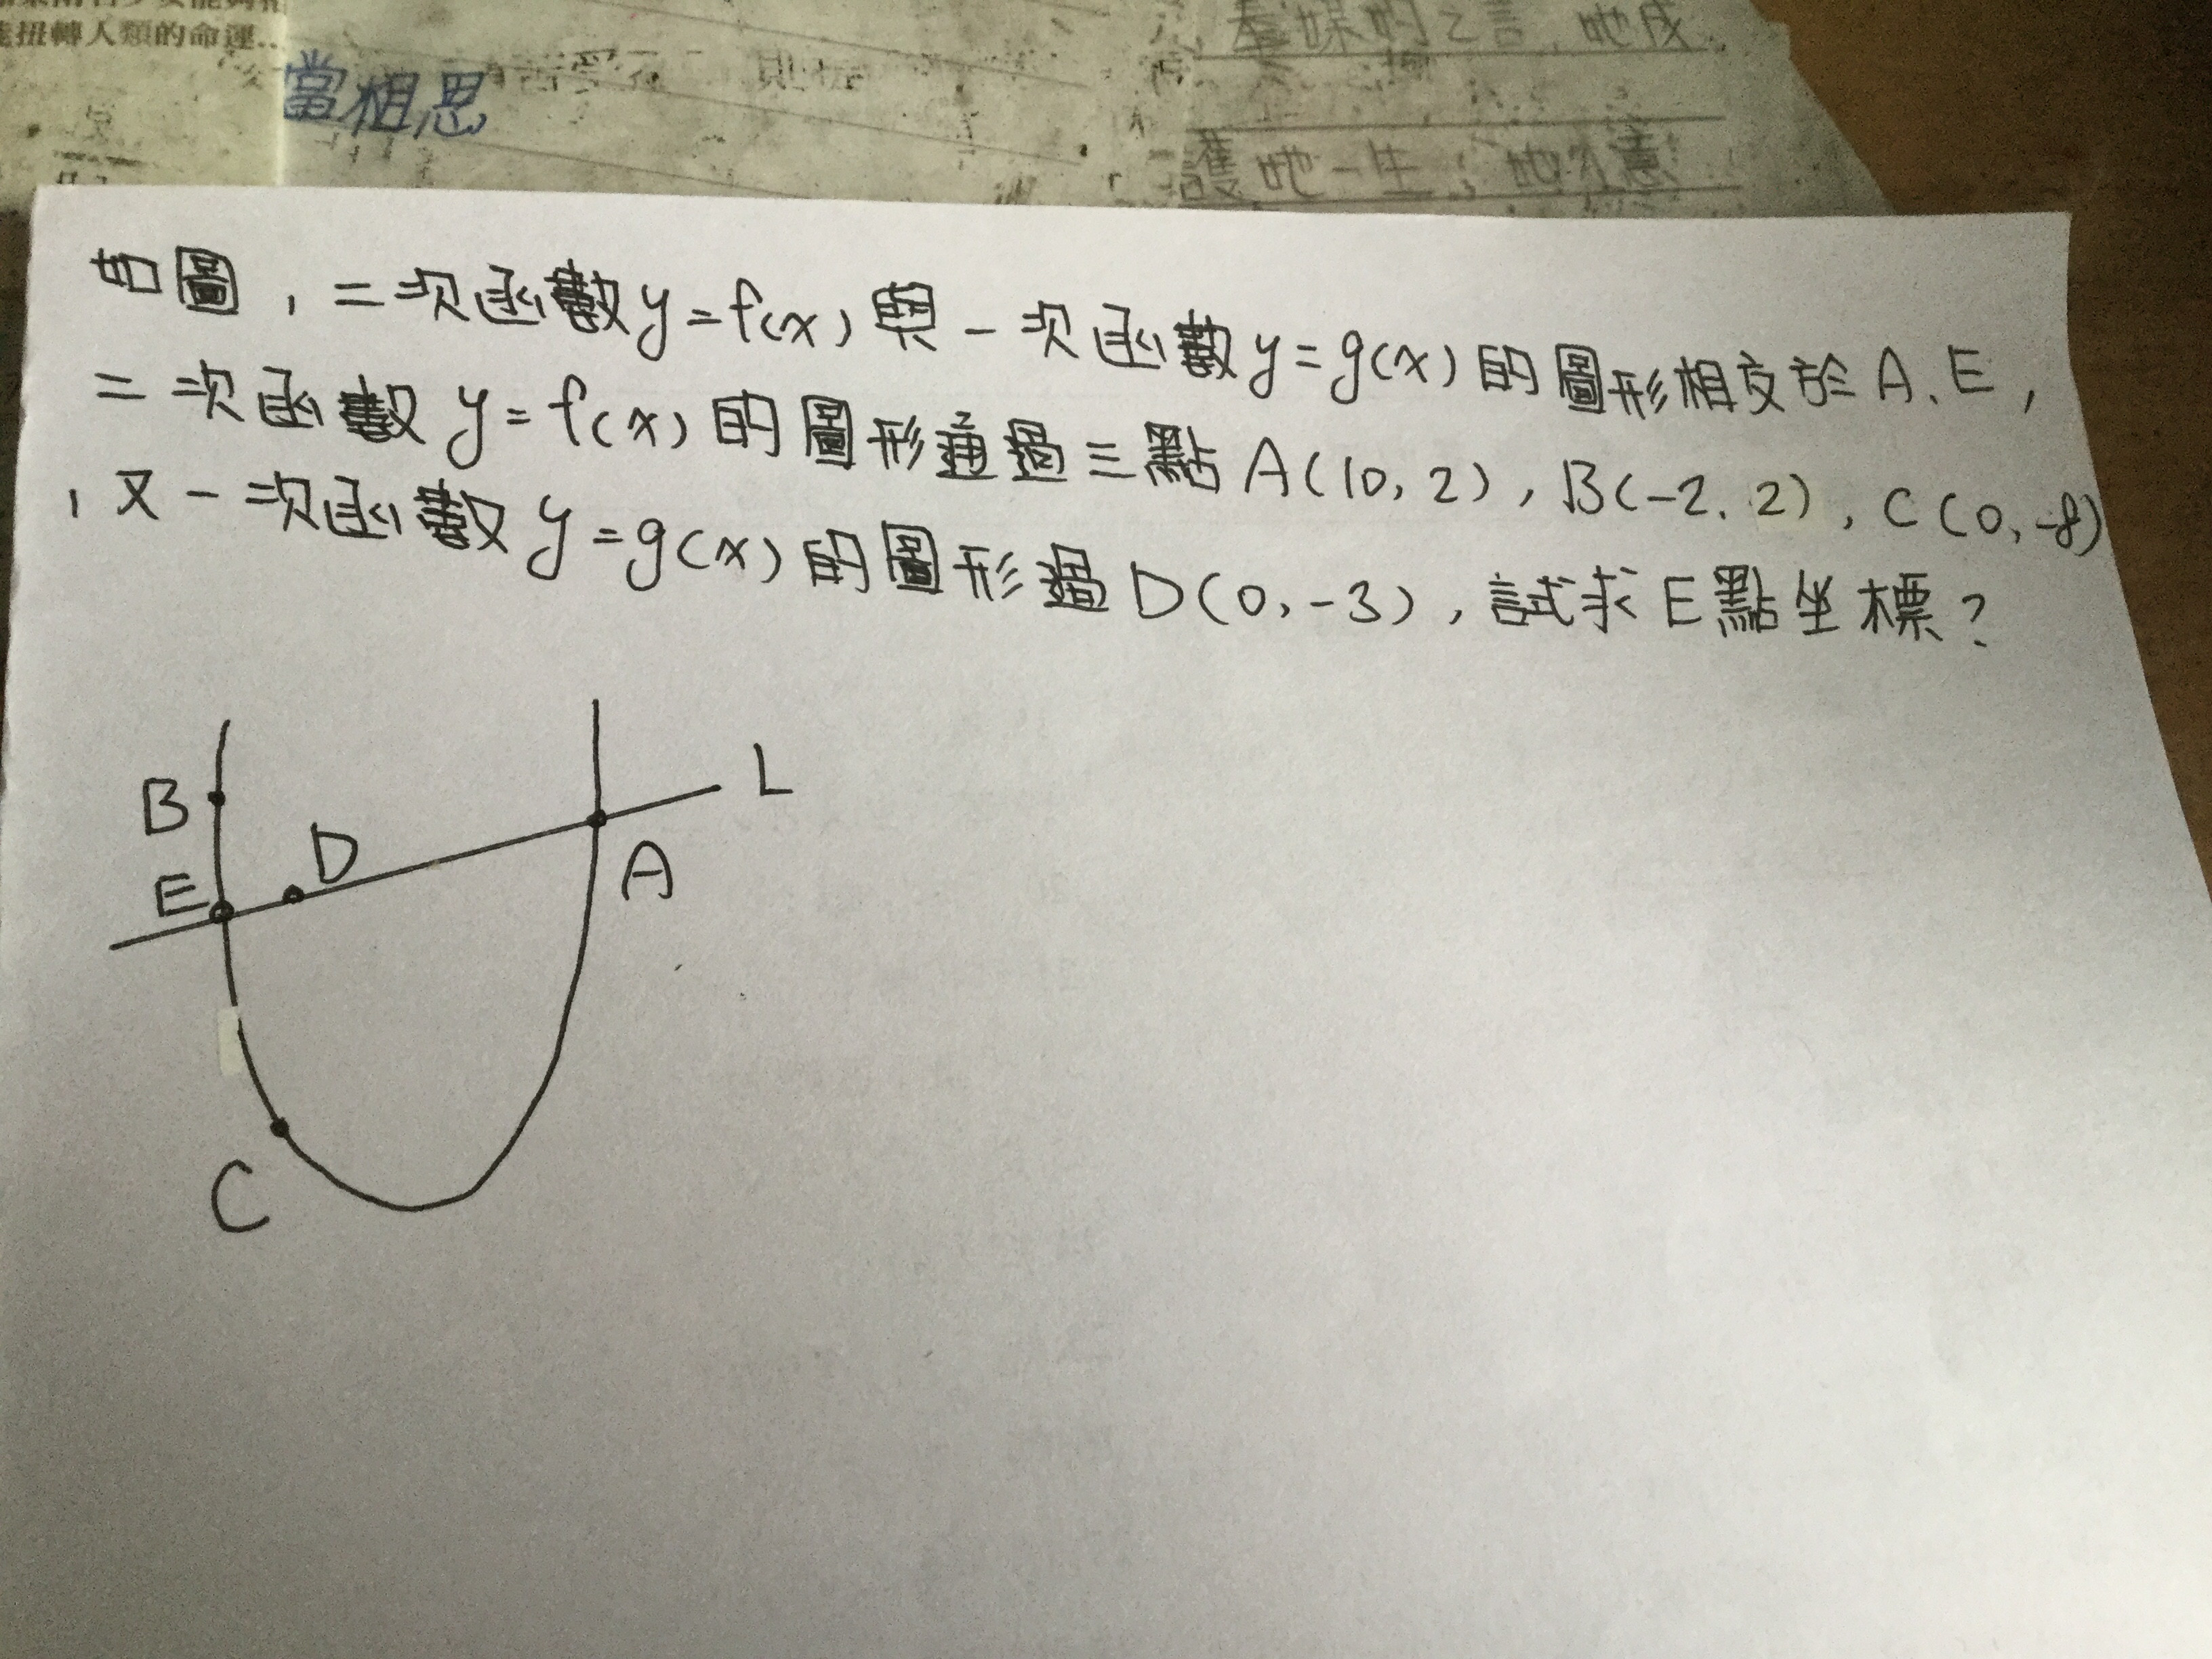 扭轉人類的命運...
當相思
護她一生,她
如圖,二次函數y=f(x)與一次函數y=g(x)的圖形相交於A、E,
二次函數y=f(x)的圖形通過三點A(10,2),B(-2,2),C(0,-8)
,又一次函數y=g(x)的圖形過D(0,-3),試求E點坐標?
B
L
D
E
A
C